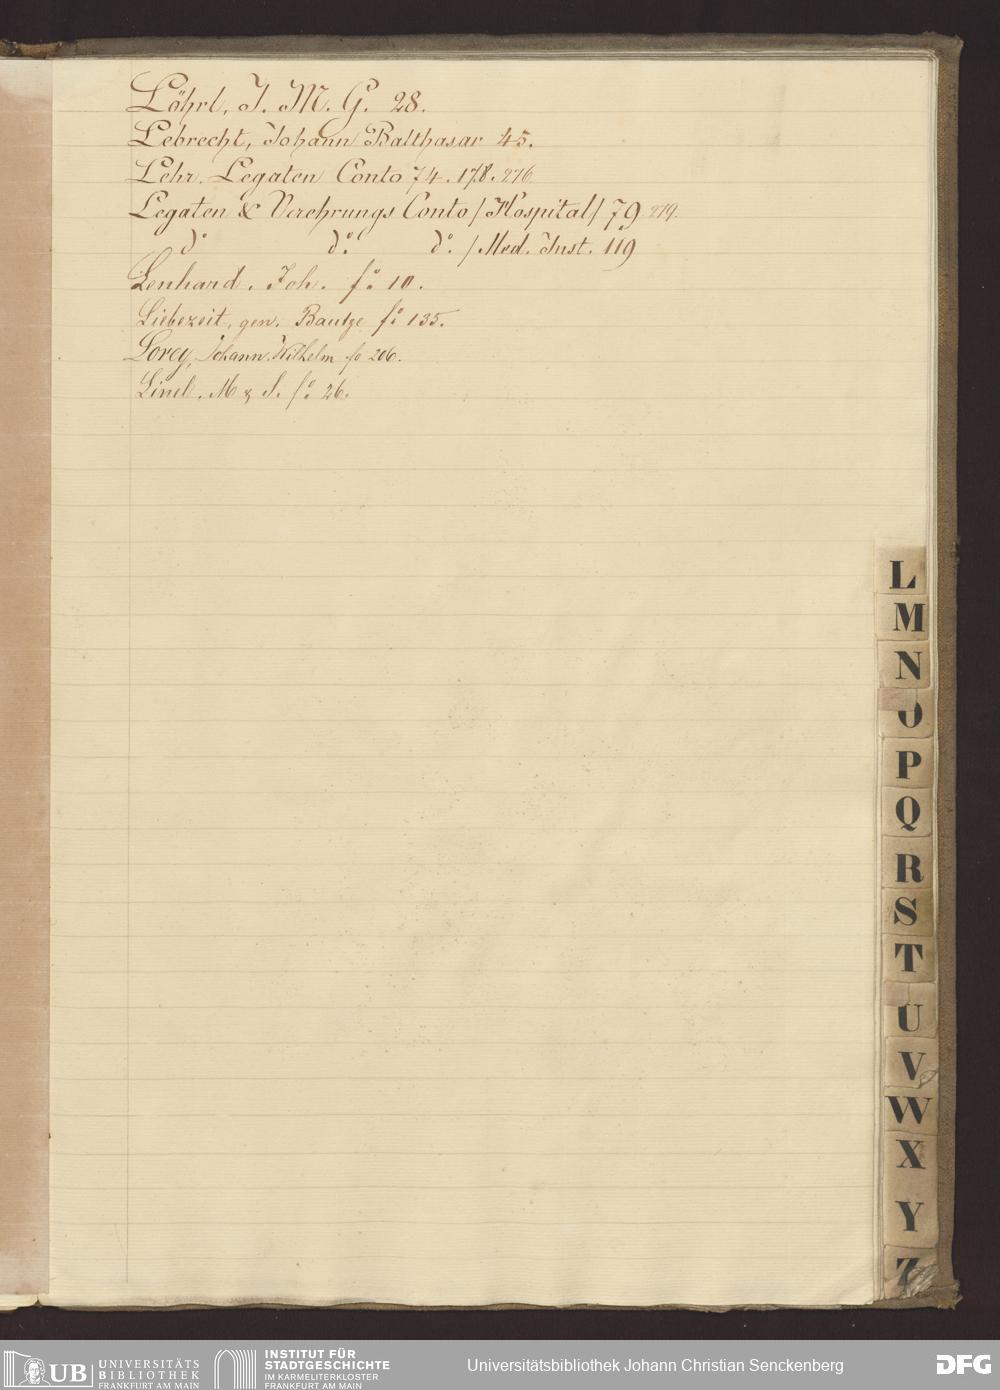 Löhrl, J. M. G. 28.
Lebrecht, Johann Balthasar 45.
Lehr. Legaten Conto 74. 178. 276
Legaten & Verehrungs Conto / Hospital / 79. 279.
do do. do. / Med. Inst. 119
Lenhard. Joh. fo. 10.
Liebezeit, gen. Bautze fo. 135.
Lorey, Johann Wilhelm fo 206.
Linel. M & S. fo. 26.
L
M
N
O
P
Q
R
S
T
U
V
W
X
Y
Z
UB UNIVERSITÄTS BIBLIOTHEK FRANKFURT AM MAIN
INSTITUT FÜR STADTGESCHICHTE IM KARMELITERKLOSTER FRANKFURT AM MAIN
Universitätsbibliothek Johann Christian Senckenberg
DFG